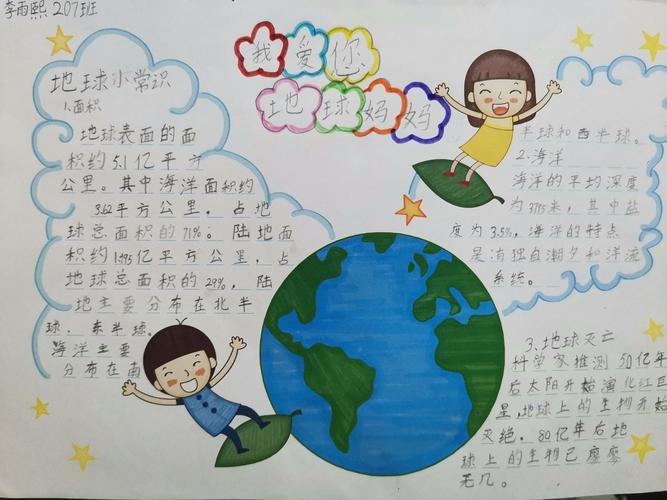 李雨熙 207班
我爱您
地球妈妈
地球小常识
1.面积
地球表面的面
积约5.1亿平方
公里。其中海洋面积约
3.62平方公里，占地
球总面积的71%。陆地面
积约1.495亿平方公里，占
地球总面积的29%，陆
地主要分布在北半
球、东半球。
海洋主要
分布在南
半球和西半球。
2.海洋
海洋的平均深度
为3715米，其中盐
度为3.5%，海洋的特点
是有独自潮夕和洋流
系统。
3.地球灭亡
科学家推测50亿年
后太阳开始演化红巨
星，地球上的生物开始
灭绝。80亿年后地
球上的生物已廖廖
无几。